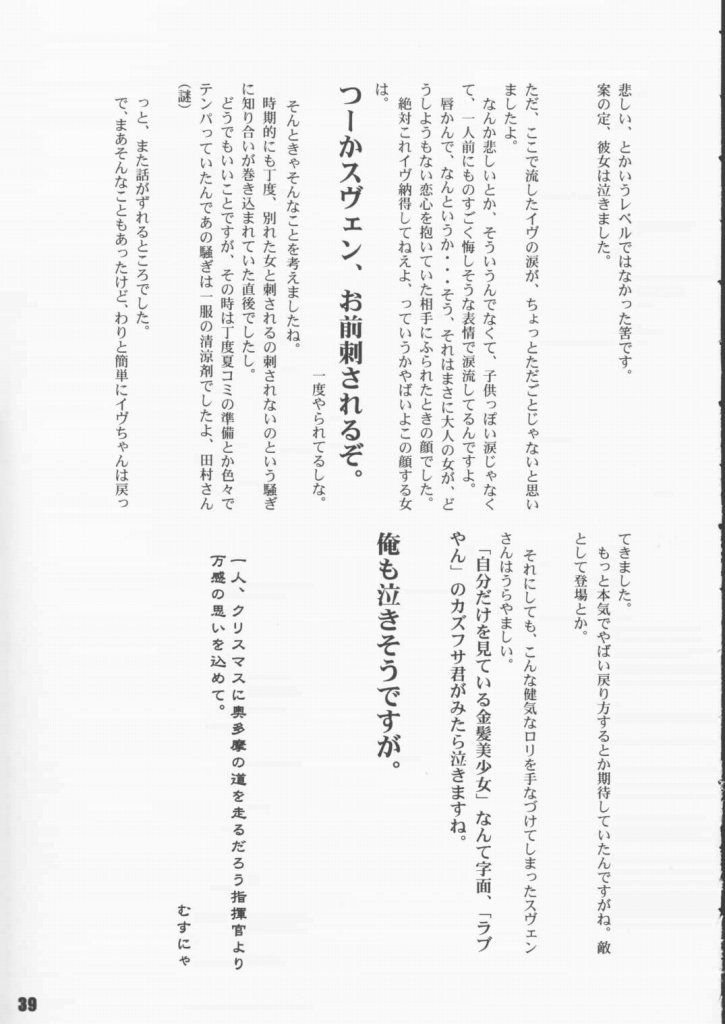 悲しい、とかいうレベルではなかった筈です。
案の定、彼女は泣きました。
ただ、ここで流したイヴの涙が、ちょっとただごとじゃないと思い
ましたよ。
なんか悲しいとか、そういうんでなくて、子供っぽい涙じゃなく
て、一人前にものすごく悔しそうな表情で涙流してるんですよ。
唇かんで、なんというか・・・そう、それはまさに大人の女が、ど
うしようもない恋心を抱いていた相手にふられたときの顔でした。
絶対これイヴ納得してねえよ、っていうかやばいよこの顔する女
は。
つーかスヴェン、お前刺されるぞ。
一度やられてるしな。
そんときゃそんなことを考えましたね。
時期的にも丁度、別れた女と刺されるの刺されないのという騒ぎ
に知り合いが巻き込まれていた直後でしたし。
どうでもいいことですが、その時は丁度夏コミの準備とか色々で
テンパっていたんであの騒ぎは一服の清涼剤でしたよ、田村さん
(謎)
っと、また話がずれるところでした。
で、まあそんなこともあったけど、わりと簡単にイヴちゃんは戻っ
てきました。
もっと本気でやばい戻り方するとか期待していたんですがね。敵
として登場とか。
それにしても、こんな健気なロリを手なづけてしまったスヴェン
さんはうらやましい。
「自分だけを見ている金髪美少女」なんて字面、「ラブ
やん」のカズフサ君がみたら泣きますね。
俺も泣きそうですが。
一人、クリスマスに奥多摩の道を走るだろう指揮官より
万感の思いを込めて。
むすにゃ
39